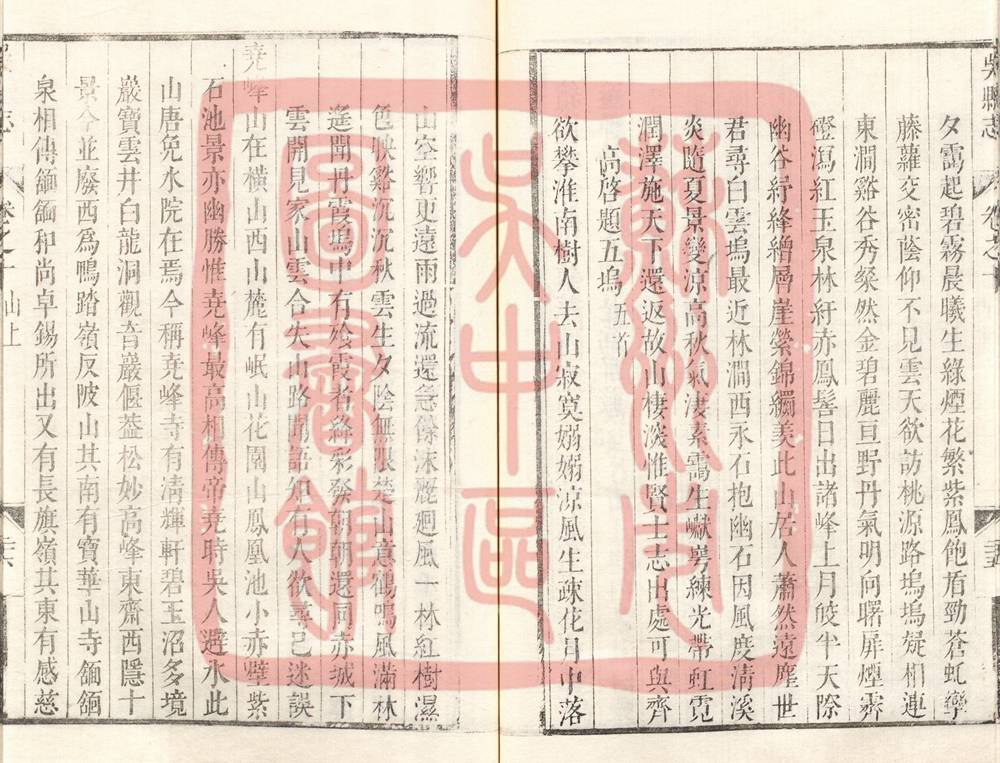 吳縣志 卷之十
夕靄起碧霧晨曦生綠煙花繁紫鳳飽盾勁蒼虬孿
藤蘿交密蔭仰不見雲天欲訪桃源路塢塢疑相連
東澗谿谷秀粲然金碧麗亘野丹氣明向曙屏煙霽
磴瀉紅玉泉林紆赤鳳髻日出諸峰上月皎半天際
幽谷紓絳繒層崖縈錦繝美此山居人蕭然遠塵世
君尋白雲塢最近林澗西永石抱幽石因風度清溪
炎隨夏景變涼高秋氣淒素靄生巘崿練光帶虹霓
潤澤施天下還返故山棲淡惟賢士志出處可與齊
高啓題五塢 五首
欲攀淮南樹人去山寂寞嫋嫋涼風生疎花月中落
山空響更遠雨過流還急餘沫灑廻風一林紅樹濕
色映谿沉沉秋雲生夕陰無限楚山意鶴鳴風滿林
遙聞丹霞塢中有飱霞者絳彩發朝朝還同赤城下
雲開見家山雲合失山路聞語知有人欲尋已迷誤
堯峰山在橫山西山麓有岷山花園山鳳凰池小赤壁紫
石池景亦幽勝惟堯峰最高相傳帝堯時吳人避水此
山唐免水院在焉今稱堯峰寺有清輝軒碧玉沼多境
巖寶雲井白龍洞觀音巖偃葢松妙高峰東齋西隱十
景今並廢西爲鴫踏嶺反陂山其南有寶華山寺
泉相傳和尚卓錫所出又有長旗嶺其東有感慈
卷之十 山上
蘇州市
吳中區
圖書館